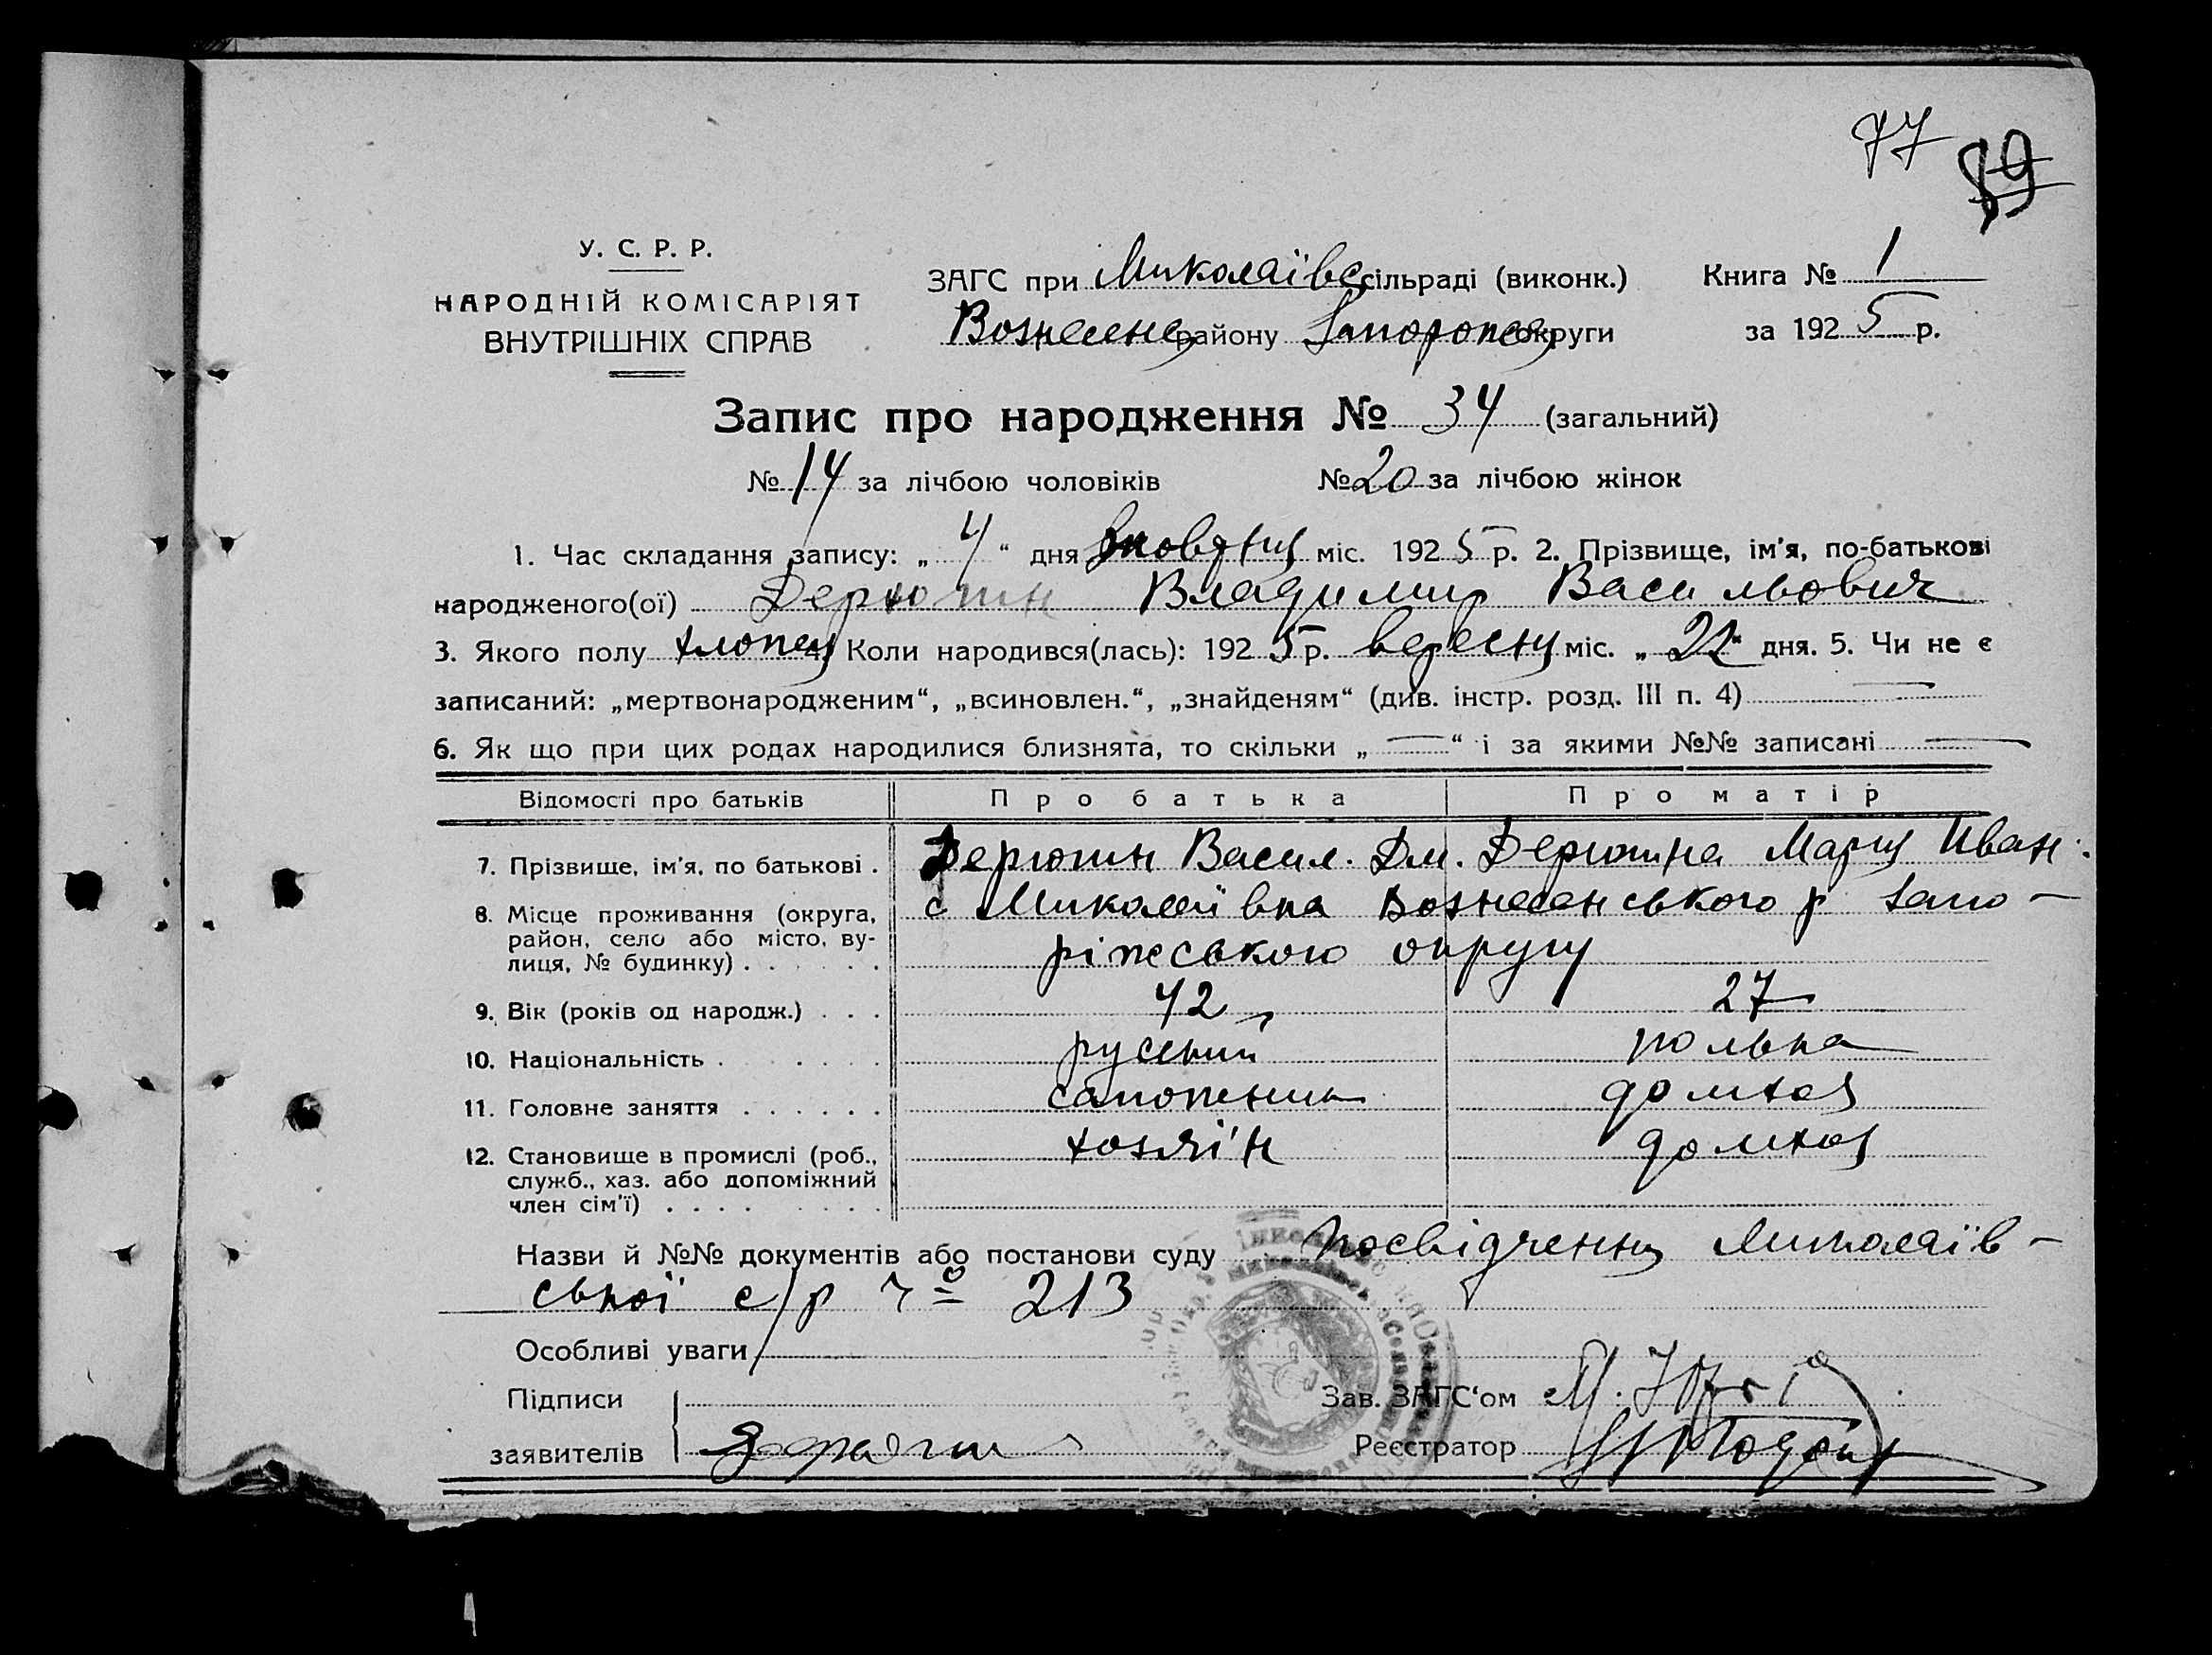 77 89
У. С. Р. Р.
НАРОДНІЙ КОМІСАРІЯТ
ВНУТРІШНІХ СПРАВ
ЗАГС при Миколаївс сільраді (виконк.) Книга № 1
Вознесенс району округи за 1925 р.
Запис про народження № 34 (загальний)
№ 14 за лічбою чоловіків № 20 за лічбою жінок
1. Час складання запису: „ 4 “ дня міс. 1925 р. 2. Прізвище, ім'я, по-батькові
народженого(ої) Дерютин Владимир Васильович
3. Якого полу хлопец 4. Коли народився(лась): 1925 р. вересня міс. „ 22 “ дня. 5. Чи не є
записаний: „мертвонародженим“, „всиновлен.“, „знайденям“ (див. інстр. розд. III п. 4) —
6. Як що при цих родах народилися близнята, то скільки „ — “ і за якими №№ записані —
Відомості про батьків Про батька Про матір
7. Прізвище, ім'я, по батькові . Дерютин Васил. Дм. Дерютина Мария Иван.
8. Місце проживання (округа, с Миколаївка Вознесенського р Запо-
район, село або місто, ву-
лиця, № будинку) . . . . . . ріжського округу
9. Вік (років од народж.) . . . 42 27
10. Національність . . . . . . руський полька
11. Головне заняття . . . . . . домхоз
12. Становище в промислі (роб., хозяїн домхоз
служб., хаз. або допоміжний
член сім'ї) . . . . . . . .
Назви й №№ документів або постанови суду посвідчення Миколаїв-
ської с/р № 213
Особливі уваги
Підписи Зав. ЗАГС'ом
заявителів Реєстратор